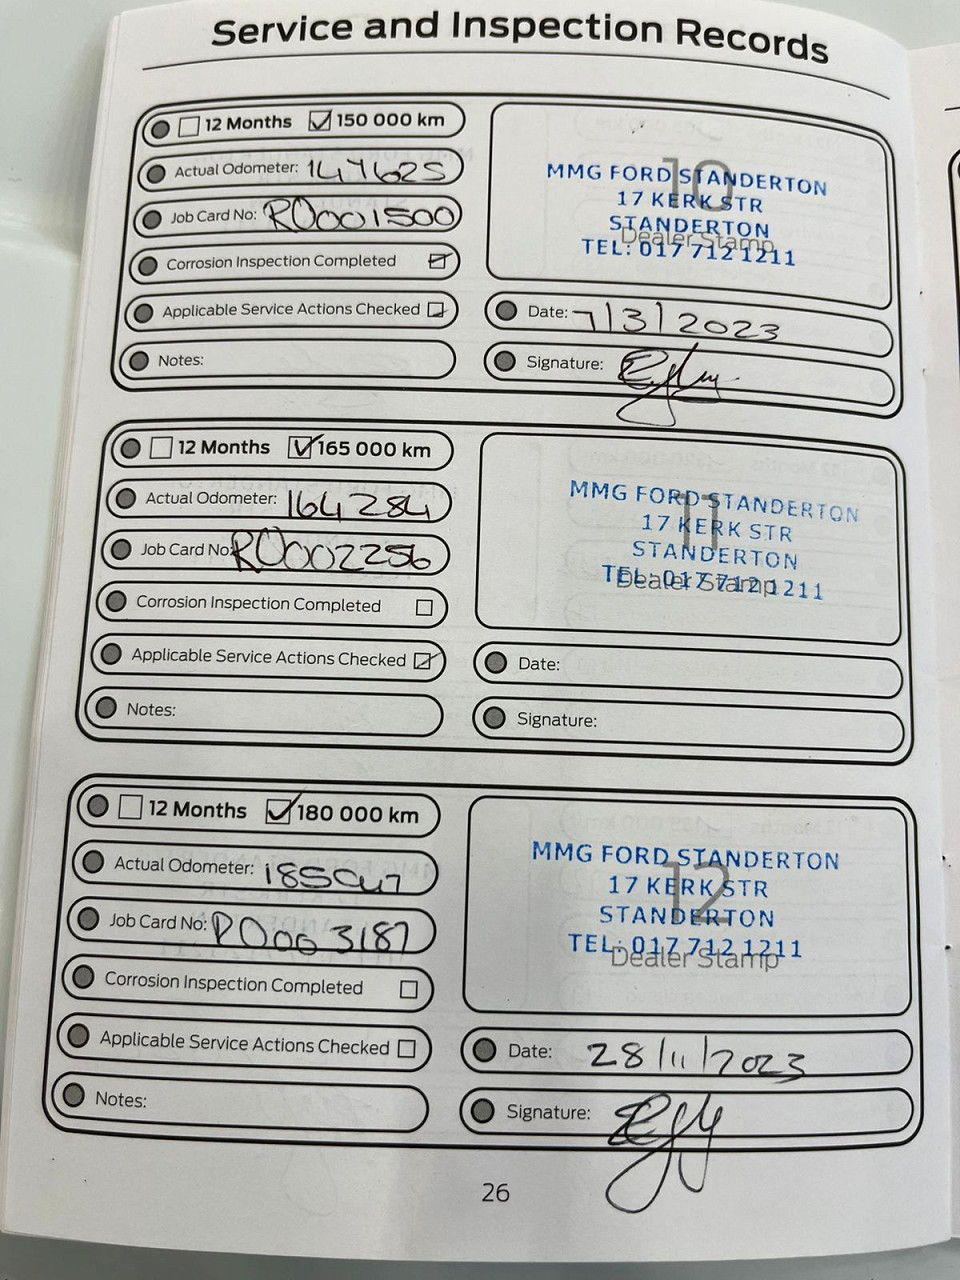 Service and Inspection Records
12 Months 150 000 km
Actual Odometer: 147625
Job Card No: RO001500
Corrosion Inspection Completed
Applicable Service Actions Checked
Notes:
10
Dealer Stamp
MMG FORD STANDERTON
17 KERK STR
STANDERTON
TEL: 017 712 1211
Date: 7/3/2023
Signature:
12 Months 165 000 km
Actual Odometer: 164284
Job Card No: RO002256
Corrosion Inspection Completed
Applicable Service Actions Checked
Notes:
11
Dealer Stamp
MMG FORD STANDERTON
17 KERK STR
STANDERTON
TEL: 017 712 1211
Date:
Signature:
12 Months 180 000 km
Actual Odometer:
Job Card No: RO003187
Corrosion Inspection Completed
Applicable Service Actions Checked
Notes:
12
Dealer Stamp
MMG FORD STANDERTON
17 KERK STR
STANDERTON
TEL: 017 712 1211
Date: 28/11/2023
Signature:
26